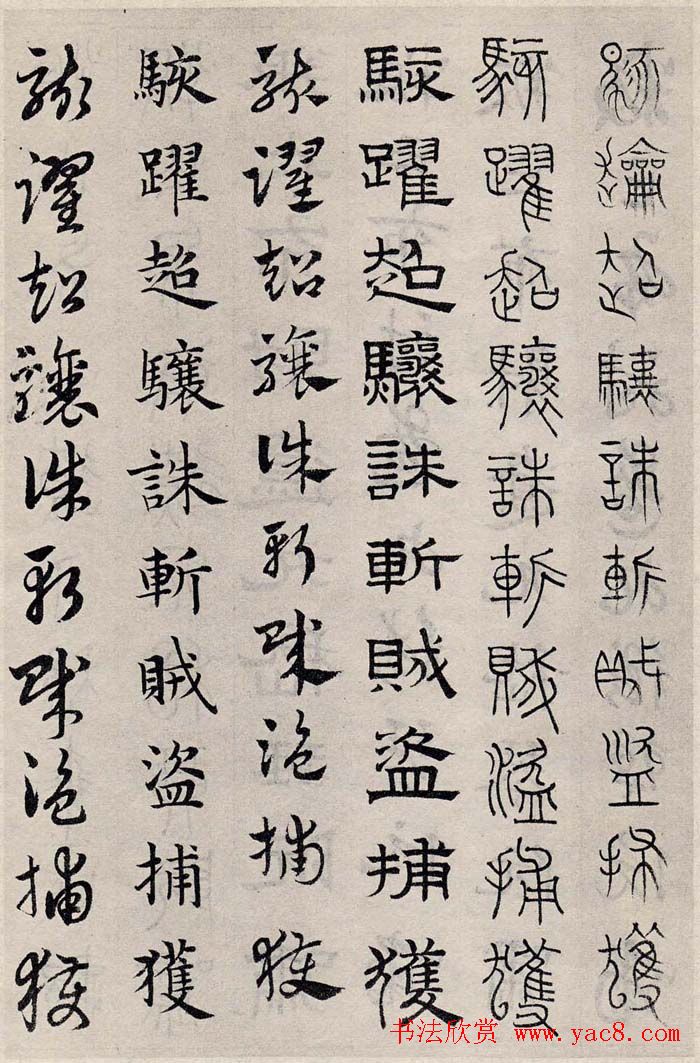 駭躍超驤誅斬賊盜捕獲
駭躍超驤誅斬賊盜捕獲
駭躍超驤誅斬賊盜捕獲
駭躍超驤誅斬賊盜捕獲
駭躍超驤誅斬賊盜捕獲
駭躍超驤誅斬賊盜捕獲
书法欣赏 www.yac8.com